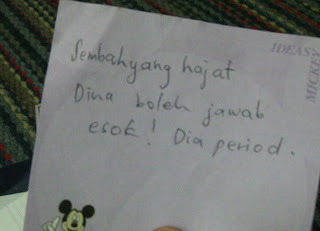 Sembahyang hajat
Dina boleh jawab
esok! Dia period.
IDEAS?
MICKEY